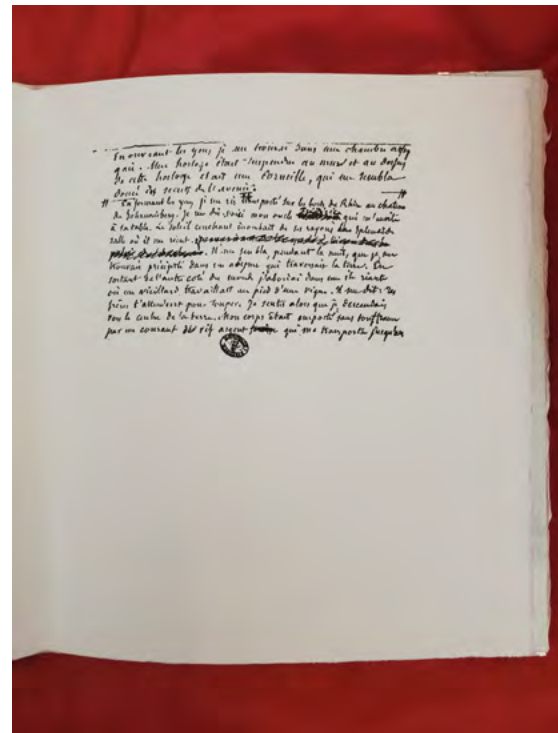 En ouvrant les yeux je me trouvai dans une chambre assez
gaie. Une horloge était suspendue au mur et au dessus
de cette horloge était une Corneille, qui me sembla
douée des secrets de l'avenir.
En fermant les yeux, je me vis transporté sur les bords du Rhin au château
de Johannisberg. Je me dis: voici mon oncle qui m'invite
à sa table. Le soleil couchant inondait de ses rayons la splendide
salle où il me reçut.
Il me sembla, pendant la nuit, que je me
trouvais précipité dans un abyme qui traversait la terre. En
sortant de l'autre coté du monde j'abordai dans une île riante
où un vieillard travaillait au pied d'une vigne. Il me dit: tes
frères t'attendent pour souper. Je sentis alors que je descendais
vers le centre de la terre. Mon corps était emporté sans souffrance
par un courant de vif argent qui me transporta jusqu'au